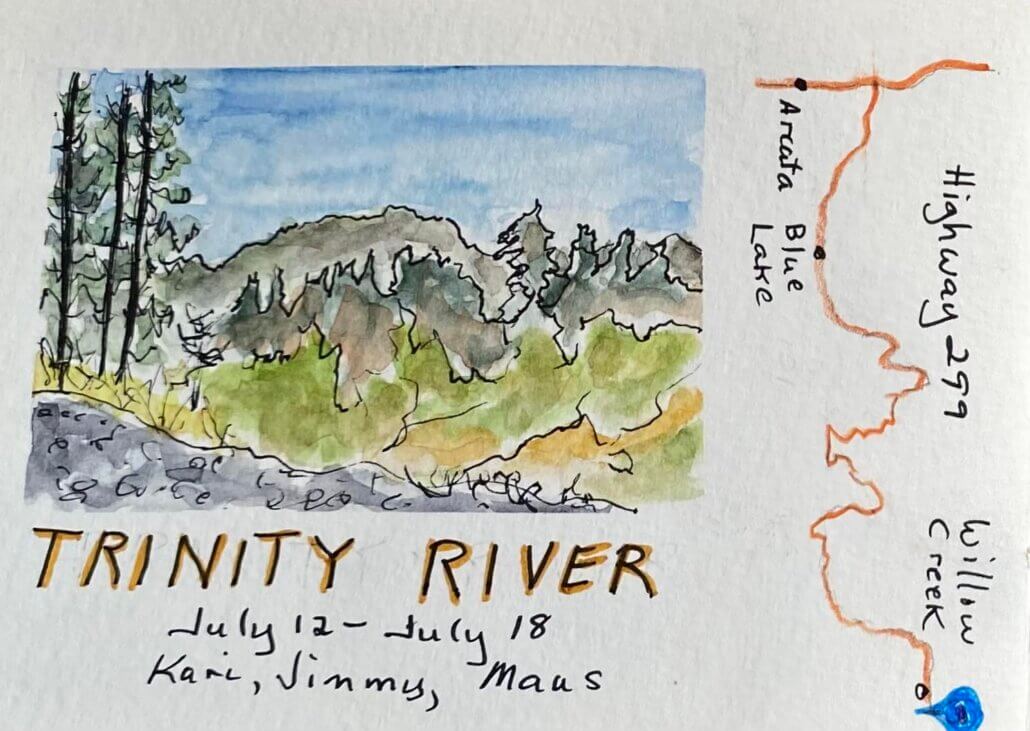 TRINITY RIVER
July 12 - July 18
Kari, Jimmy, Maus
Arcata
Blue
Lake
Highway 299
Willow
Creek